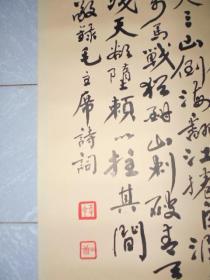 三山倒海翻江捲巨
馬戰猶酣山刺破青天
殘天欲墮賴以拄其間
敬錄毛主席詩詞